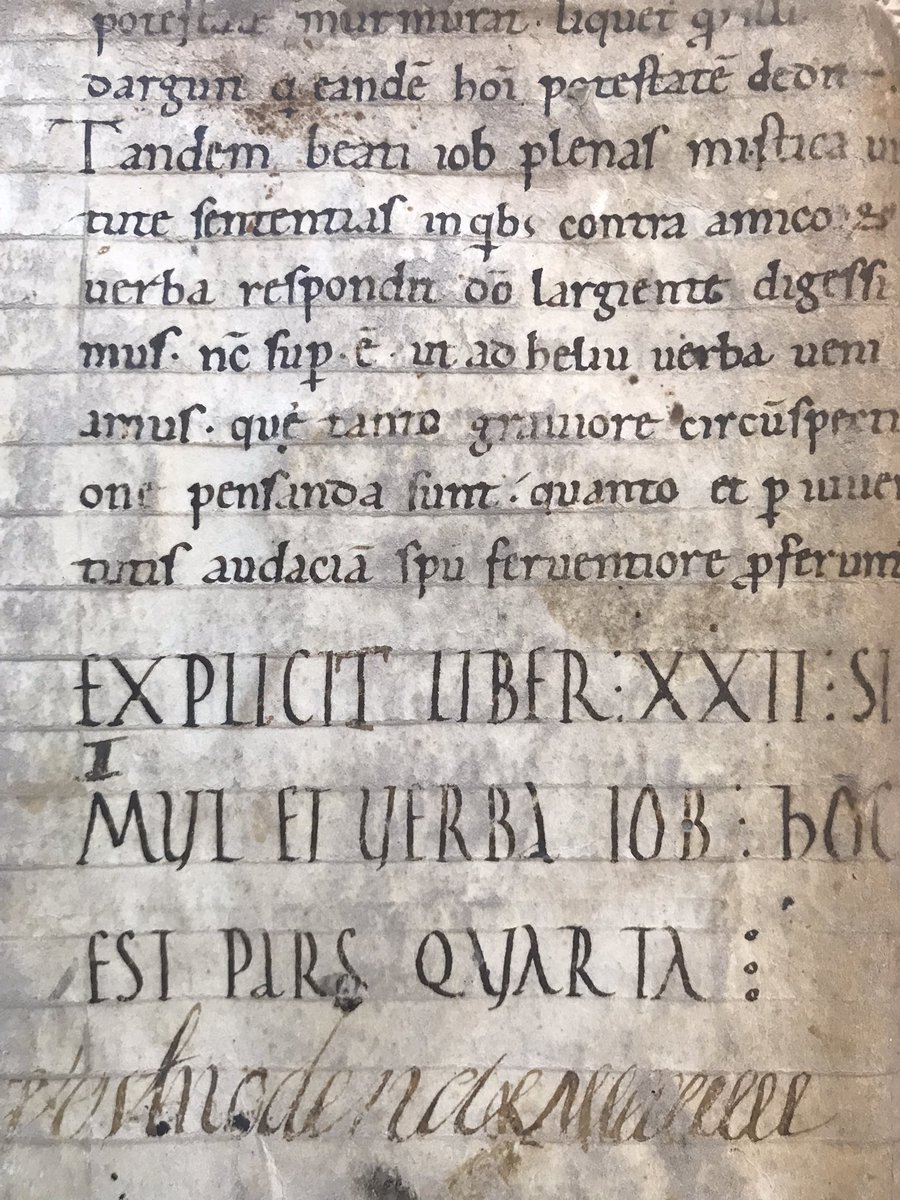 potestate murmurat. liquet
oarguit q̇ eandē hoī potestatē dedit
Tandem beati iob plenas mistica ui
tute sententias in qͥbꝫ contra amicoꝝ
uerba respondit dō largiente digessi
mus. nc̄ suꝑ.ē. ut ad heliu uerba ueni
amus. quę tanto grauiore circūspecti
one pensanda sunt. quanto et ꝑ iuuen
tutis audaciā spū feruentiore ꝓferunt
EXPLICIT LIBER : XXII : SI
I
MUL ET UERBA IOB : hOC
EST PARS QUARTA :